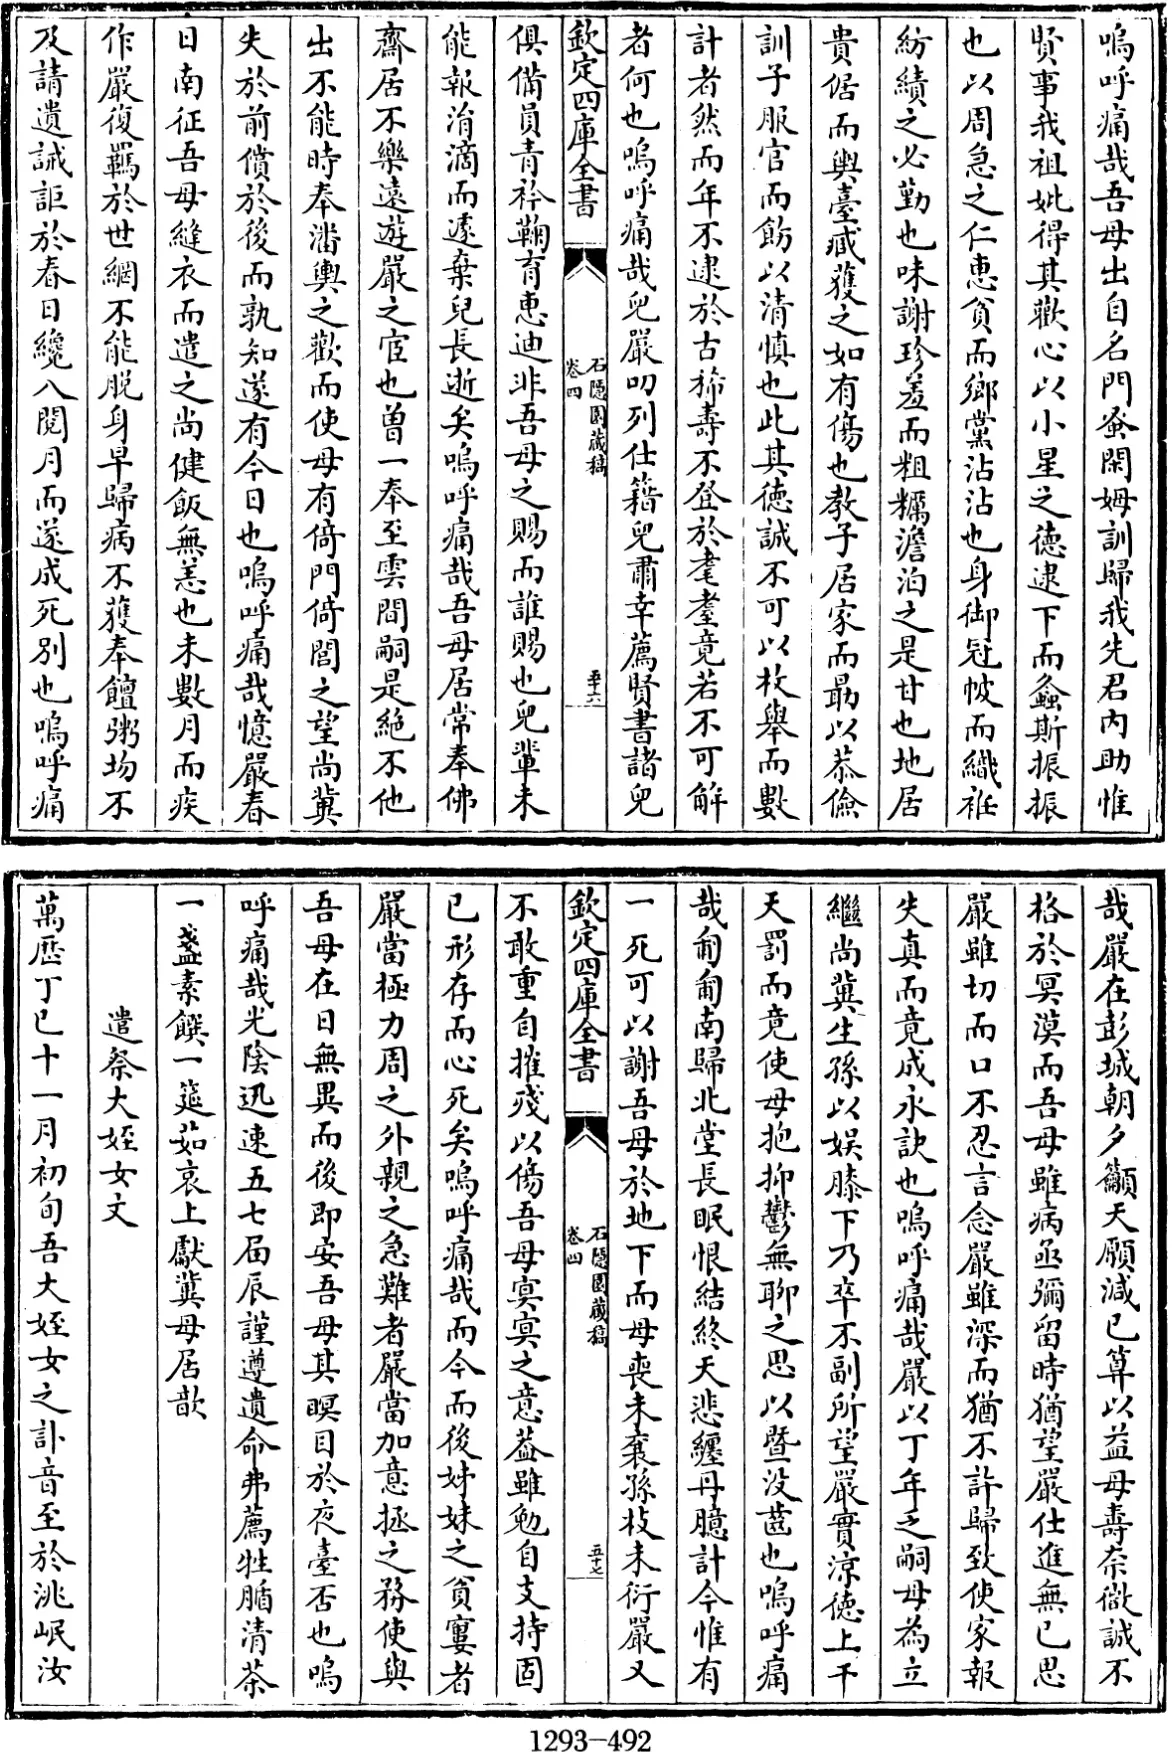 嗚呼痛哉吾母出自名門蚤閑姆訓歸我先君内助惟
賢事我祖妣得其歡心以小星之德逮下而螽斯振振
也以周急之仁惠貧而鄉黨沾沾也身御冠帔而織袵
紡績之必勤也味謝珍羞而粗糲澹泊之是甘也地居
貴倨而輿臺臧獲之如有傷也教子居家而勗以恭儉
訓子服官而飭以清慎也此其德誠不可以枚舉而數
計者然而年不逮於古稀壽不登於耄耋竟若不可解
者何也嗚呼痛哉兒嚴叨列仕籍兒肅幸薦賢書諸兒
欽定四庫全書
石隠園藏稿
卷四
五十六
俱備員青衿鞠育惠迪非吾母之賜而誰賜也兒輩未
能報涓滴而遽棄兒長逝矣嗚呼痛哉吾母居常奉佛
齋居不樂遠遊嚴之宦也曽一奉至雲間嗣是絶不他
出不能時奉潘輿之歡而使母有倚門倚閭之望尚冀
失於前償於後而孰知遂有今日也嗚呼痛哉憶嚴春
日南征吾母縫衣而遣之尚健飯無恙也未數月而疾
作嚴復羈於世網不能脱身早歸病不獲奉饘粥塲不
及請遺誡詎於春日纔八閲月而遂成死别也嗚呼痛
哉嚴在彭城朝夕籲天願減已算以益母壽奈微誠不
格於冥漠而吾母雖病亟彌留時猶望嚴仕進無已思
嚴雖切而口不忍言念嚴雖深而猶不許歸致使家報
失真而竟成永訣也嗚呼痛哉嚴以丁年乏嗣母為立
繼尚冀生孫以娱膝下乃卒不副所望嚴實涼德上干
天罰而竟使母抱抑鬱無聊之思以暨没齒也嗚呼痛
哉匍匐南歸北堂長眠恨結終天悲纏丹臆計今惟有
一死可以謝吾母於地下而母喪未襄孫枝未衍嚴又
欽定四庫全書
石隠園藏稿
卷四
五十七
不敢重自摧殘以傷吾母冥冥之意葢雖勉自支持固
已形存而心死矣嗚呼痛哉而今而後姊妹之貧窶者
嚴當極力周之外親之急難者嚴當加意拯之務使與
吾母在日無異而後即安吾母其暝目於夜臺否也嗚
呼痛哉光陰迅速五七届辰謹遵遺命弗薦牲腯清茶
一盞素饌一筵茹哀上獻冀母居歆
遣祭大姪女文
萬歴丁巳十一月初旬吾大姪女之訃音至於洮岷汝
1293-492